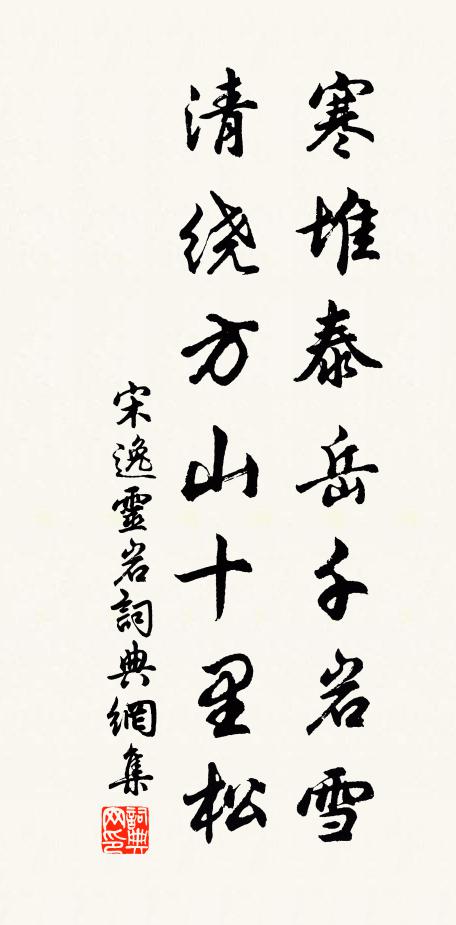 寒堆泰岳千岩雪
清绕方山十里松
宋逸靈岩詞典網集
詞典网印